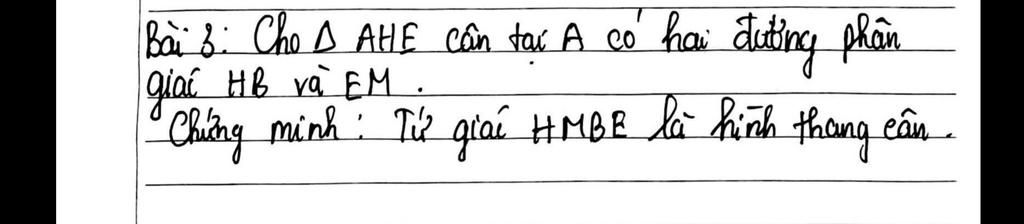 Bài 3: Cho Δ AHE cân tại A có hai đường phân
giác HB và EM.
Chứng minh: Tứ giác HMBE là hình thang cân.